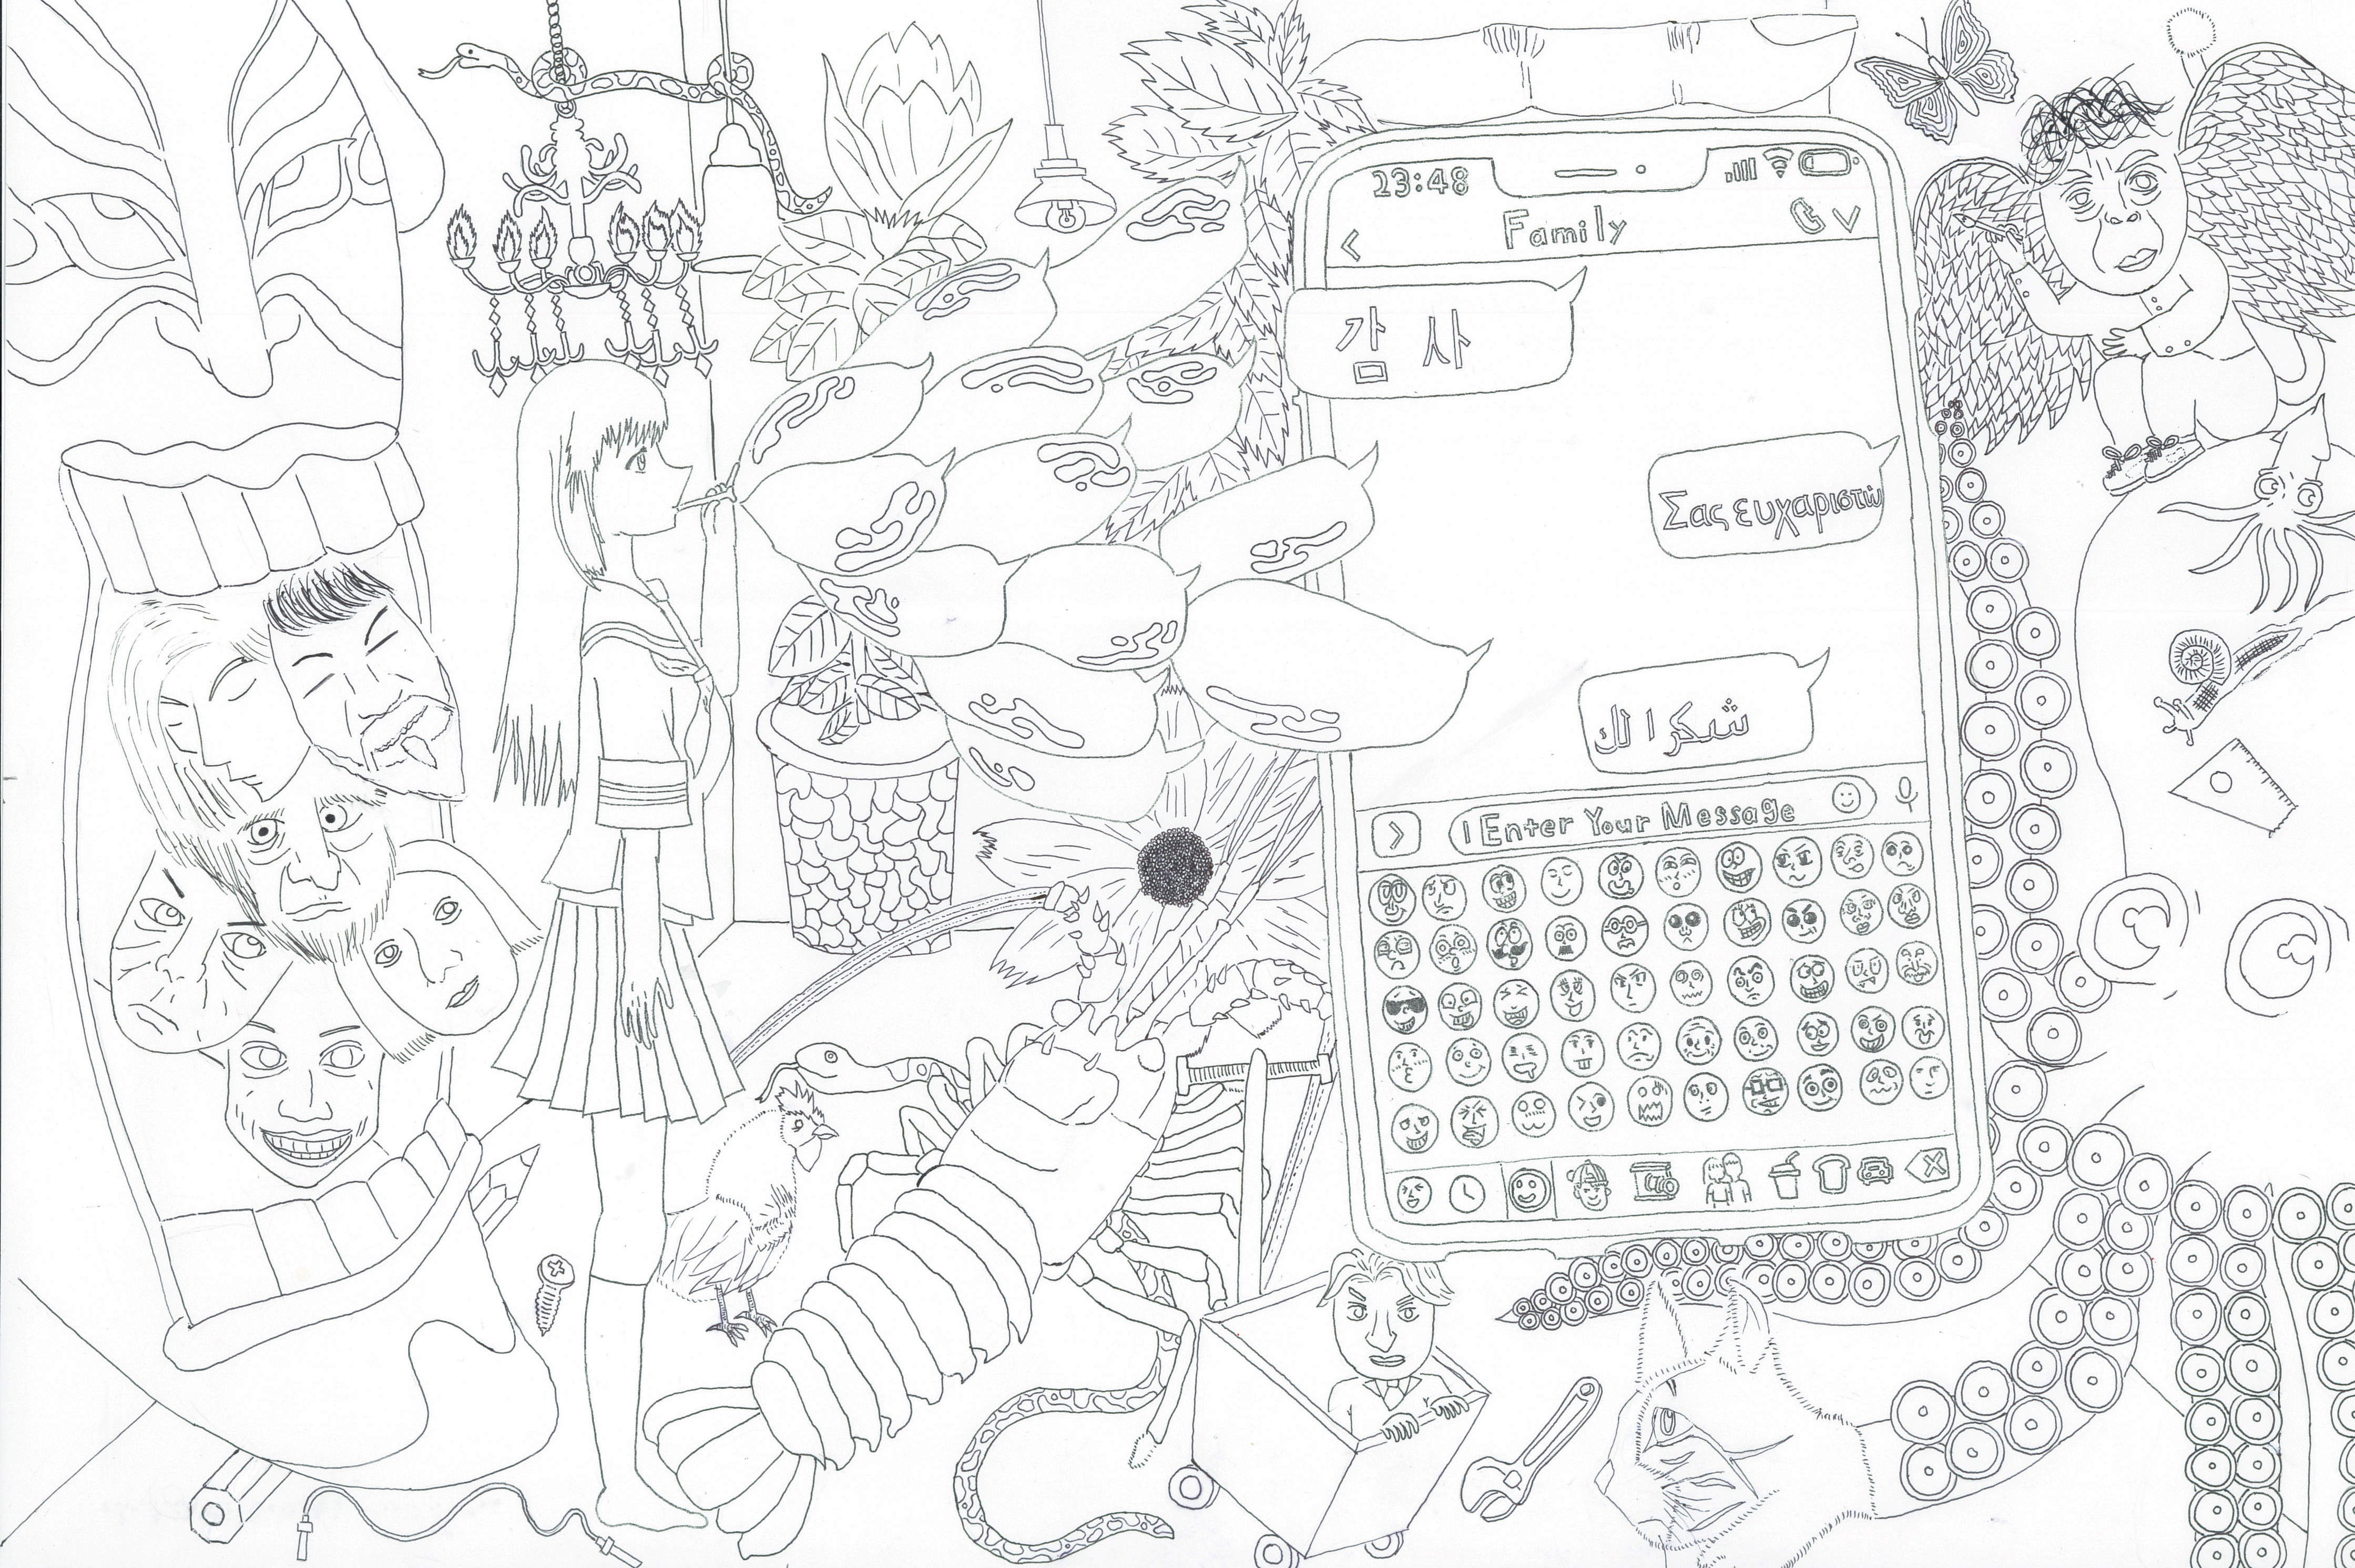 23:48
Family
감 사
Σας ευχαριστώ
شكرا لك
Enter Your Message